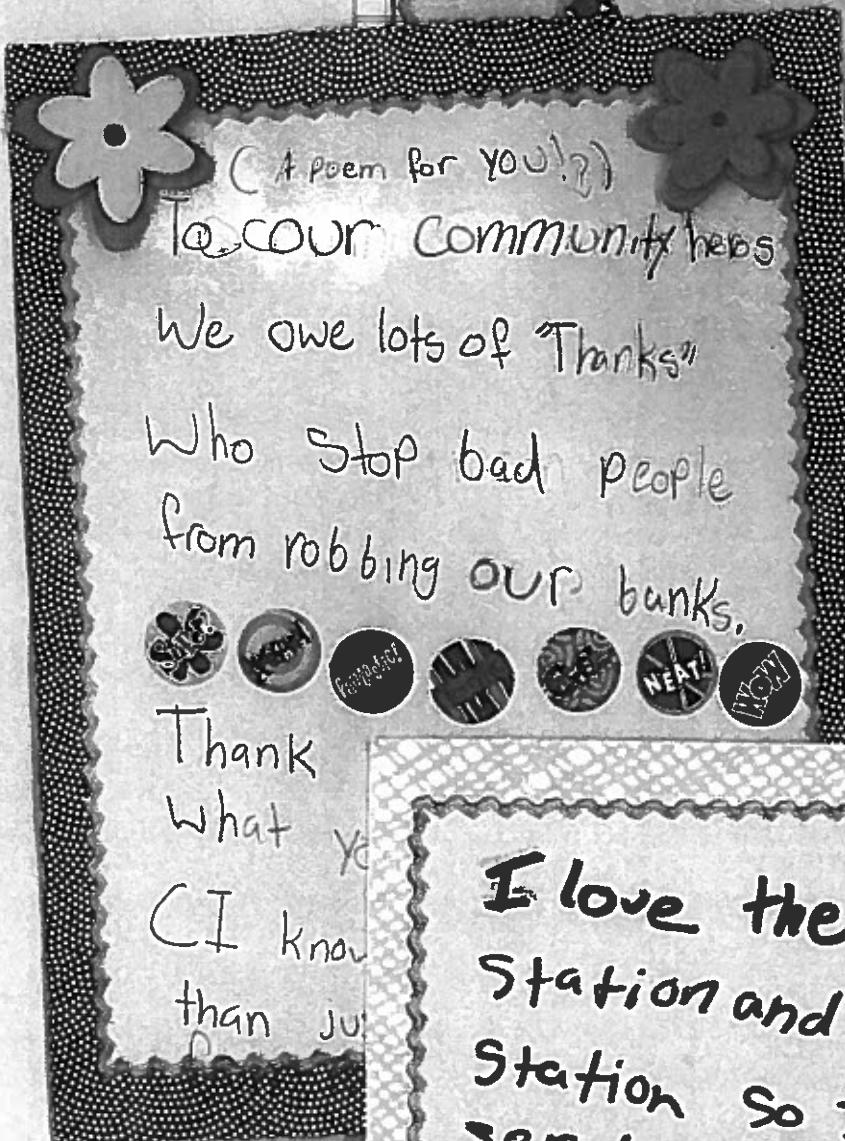 ( A poem for you!?)
To our community heros
We owe lots of "Thanks"
Who stop bad people
from robbing our banks.
Fantastic!
NEAT!
WOW
Thank
what
(I know
than
I love the
Station and
Station so